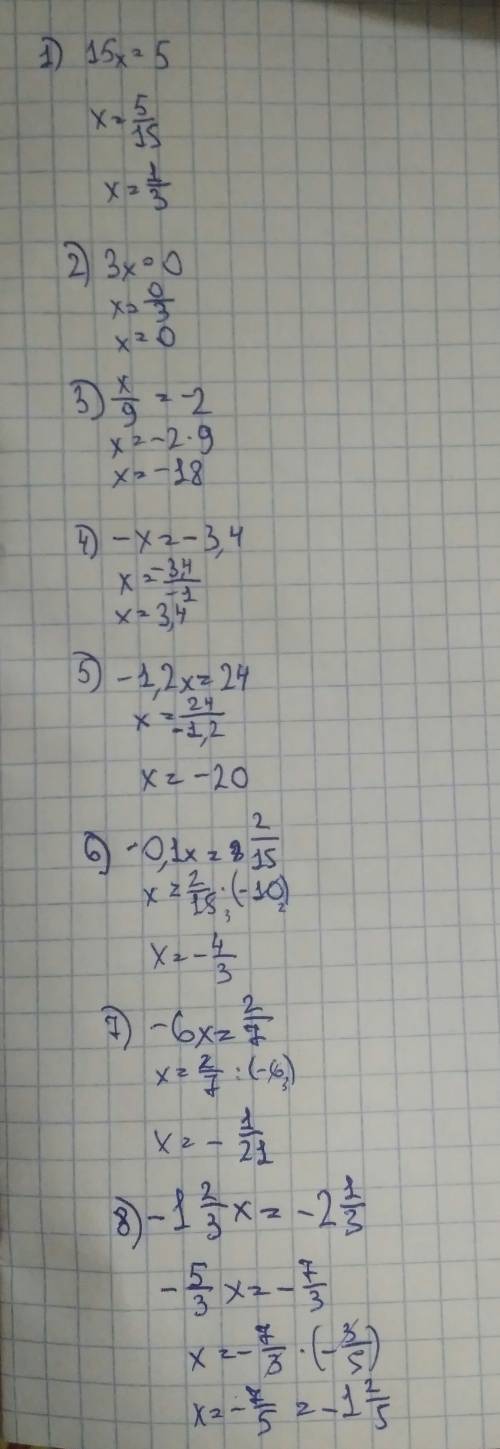 1) 15x = 5
x = 5/15
x = 1/3
2) 3x = 0
x = 0/3
x = 0
3) x/9 = -2
x = -2 · 9
x = -18
4) -x = -3,4
x = -3,4/-1
x = 3,4
5) -1,2x = 24
x = 24/-1,2
x = -20
6) -0,1x = 2/15
x = 2/15 3 · (-10) 2
x = -4/3
7) -6x = 2/7
x = 2/7 : (-6) 3
x = -1/21
8) -1 2/3 x = -2 1/3
-5/3 x = -7/3
x = -7/3 · (-3/5)
x = -7/5 = -1 2/5